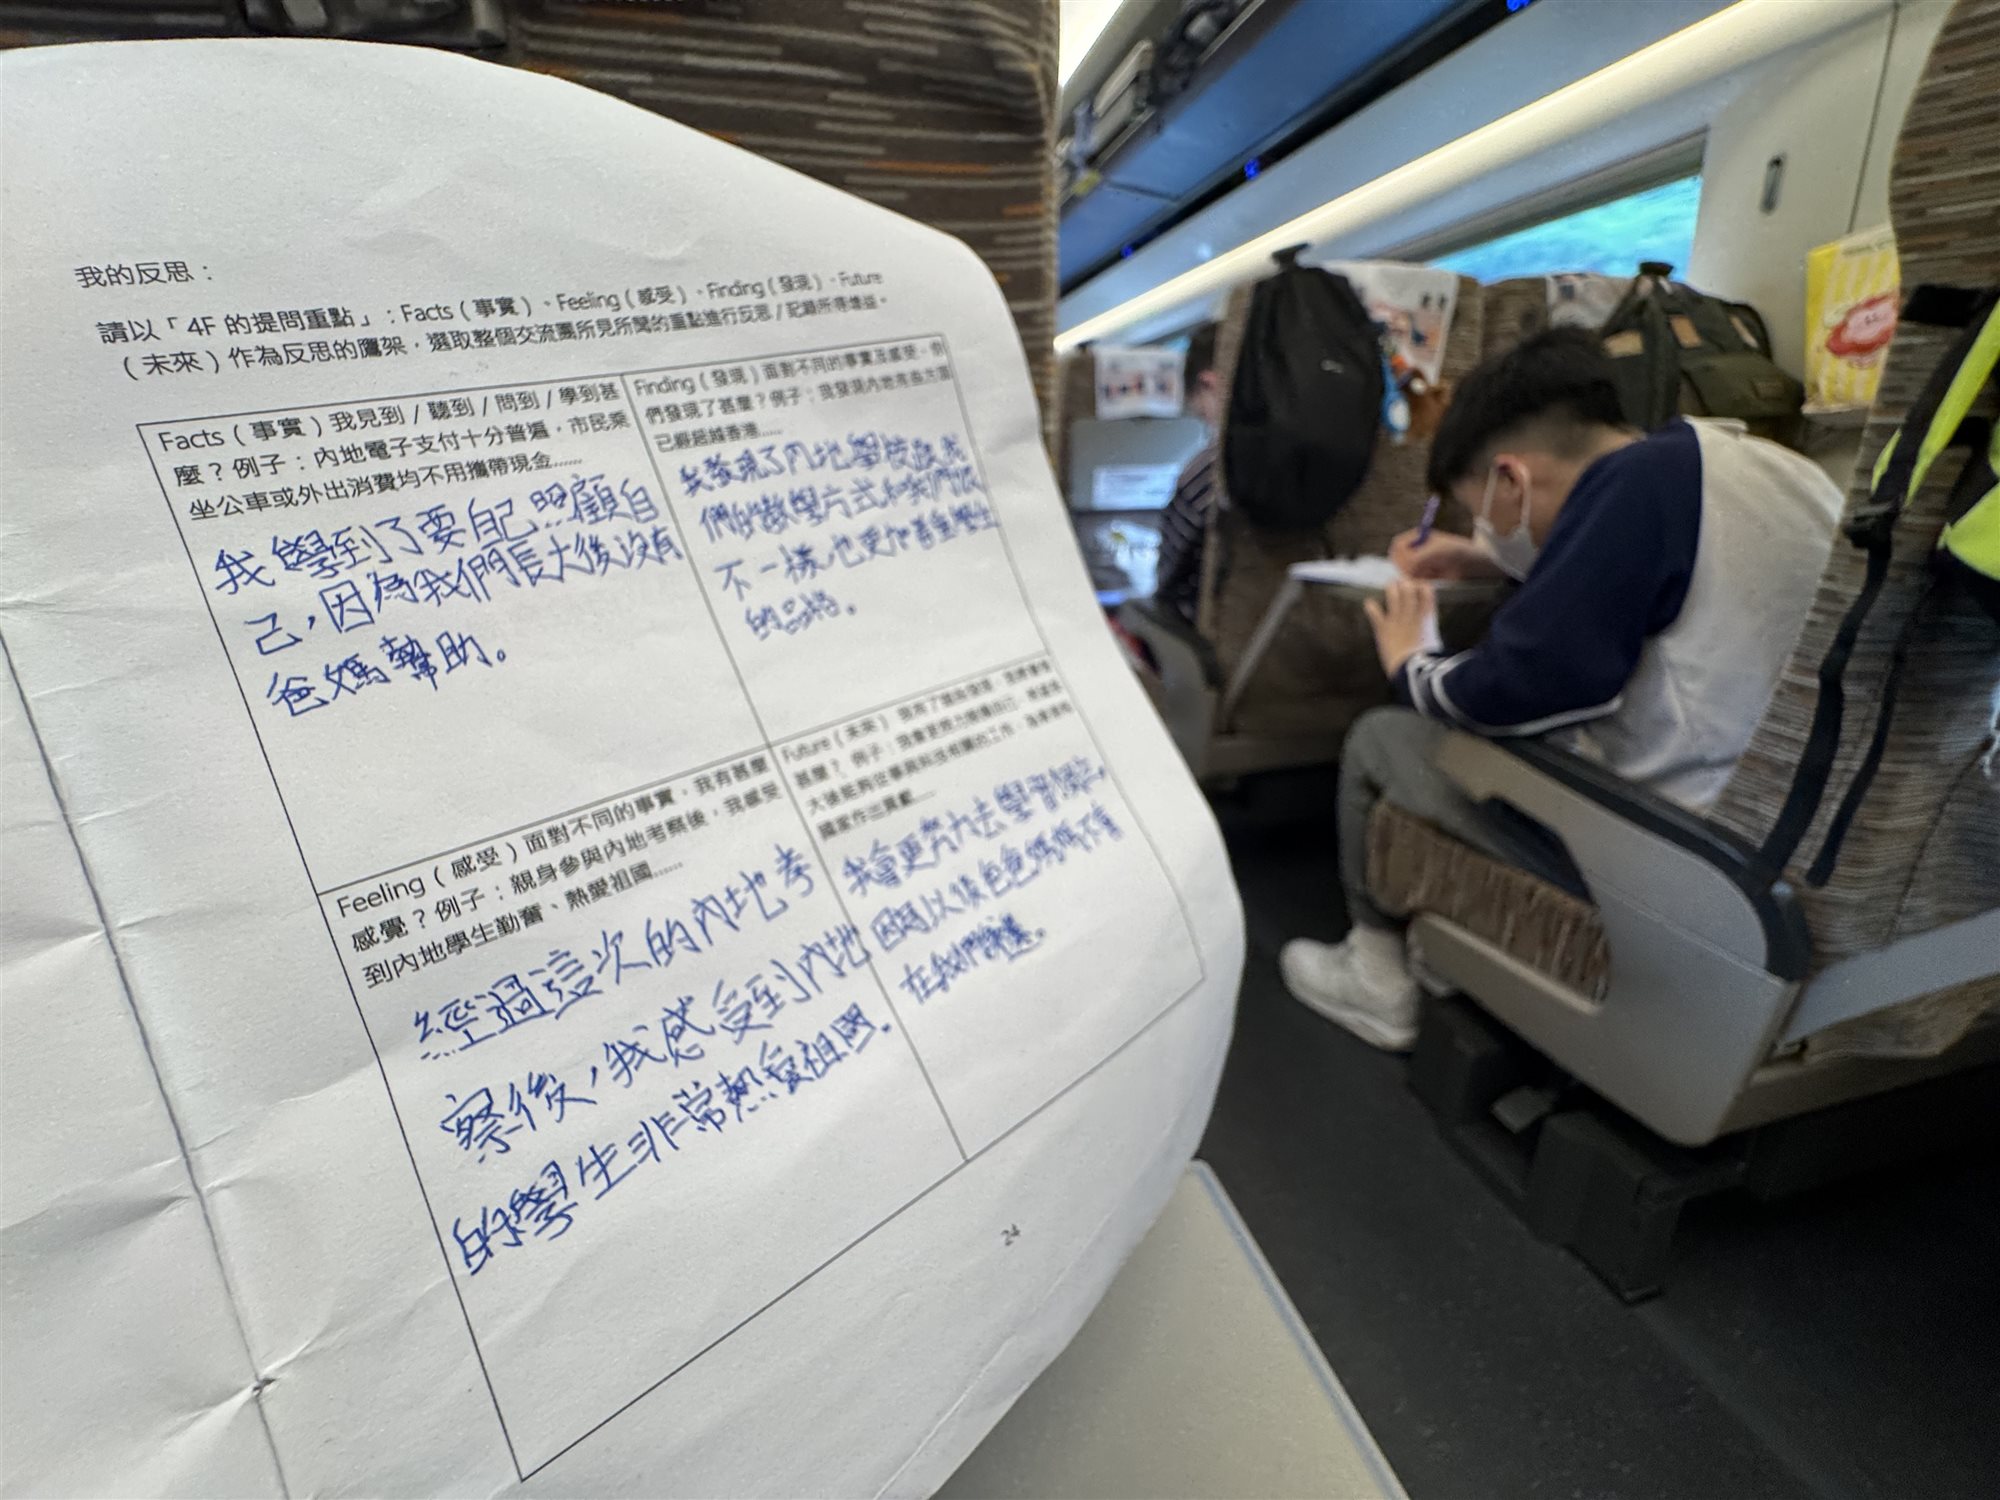 我的反思：
請以「4F 的提問重點」：Facts（事實）、Feeling（感受）、Finding（發現）、Future
（未來）作為反思的鷹架，選取整個交流團所見所聞的重點進行反思 / 記錄所得增益。
Facts（事實）我見到 / 聽到 / 問到 / 學到甚
麼？例子：內地電子支付十分普遍，市民乘
坐公車或外出消費均不用攜帶現金......
我學到了要自己照顧自
己，因為我們長大後沒有
爸媽幫助。
Finding（發現）面對不同的事實及感受，你
們發現了甚麼？例子：我發現內地有些方面
已經超越香港......
我發現了內地學校跟我
們的教學方式和我們很
不一樣，也更加着重學生
的品格。
Feeling（感受）面對不同的事實，我有甚麼
感覺？例子：親身參與內地考察後，我感受
到內地學生勤奮、熱愛祖國......
經過這次的內地考
察後，我感受到內地
的學生非常熱愛祖國。
Future（未來）
甚麼？例子：我會更努力
大後能夠從事與科技相關的工作，為
國家作出貢獻......
我會更努力去學習獨立，
因為以後爸爸媽媽不會
在我們身邊。
24